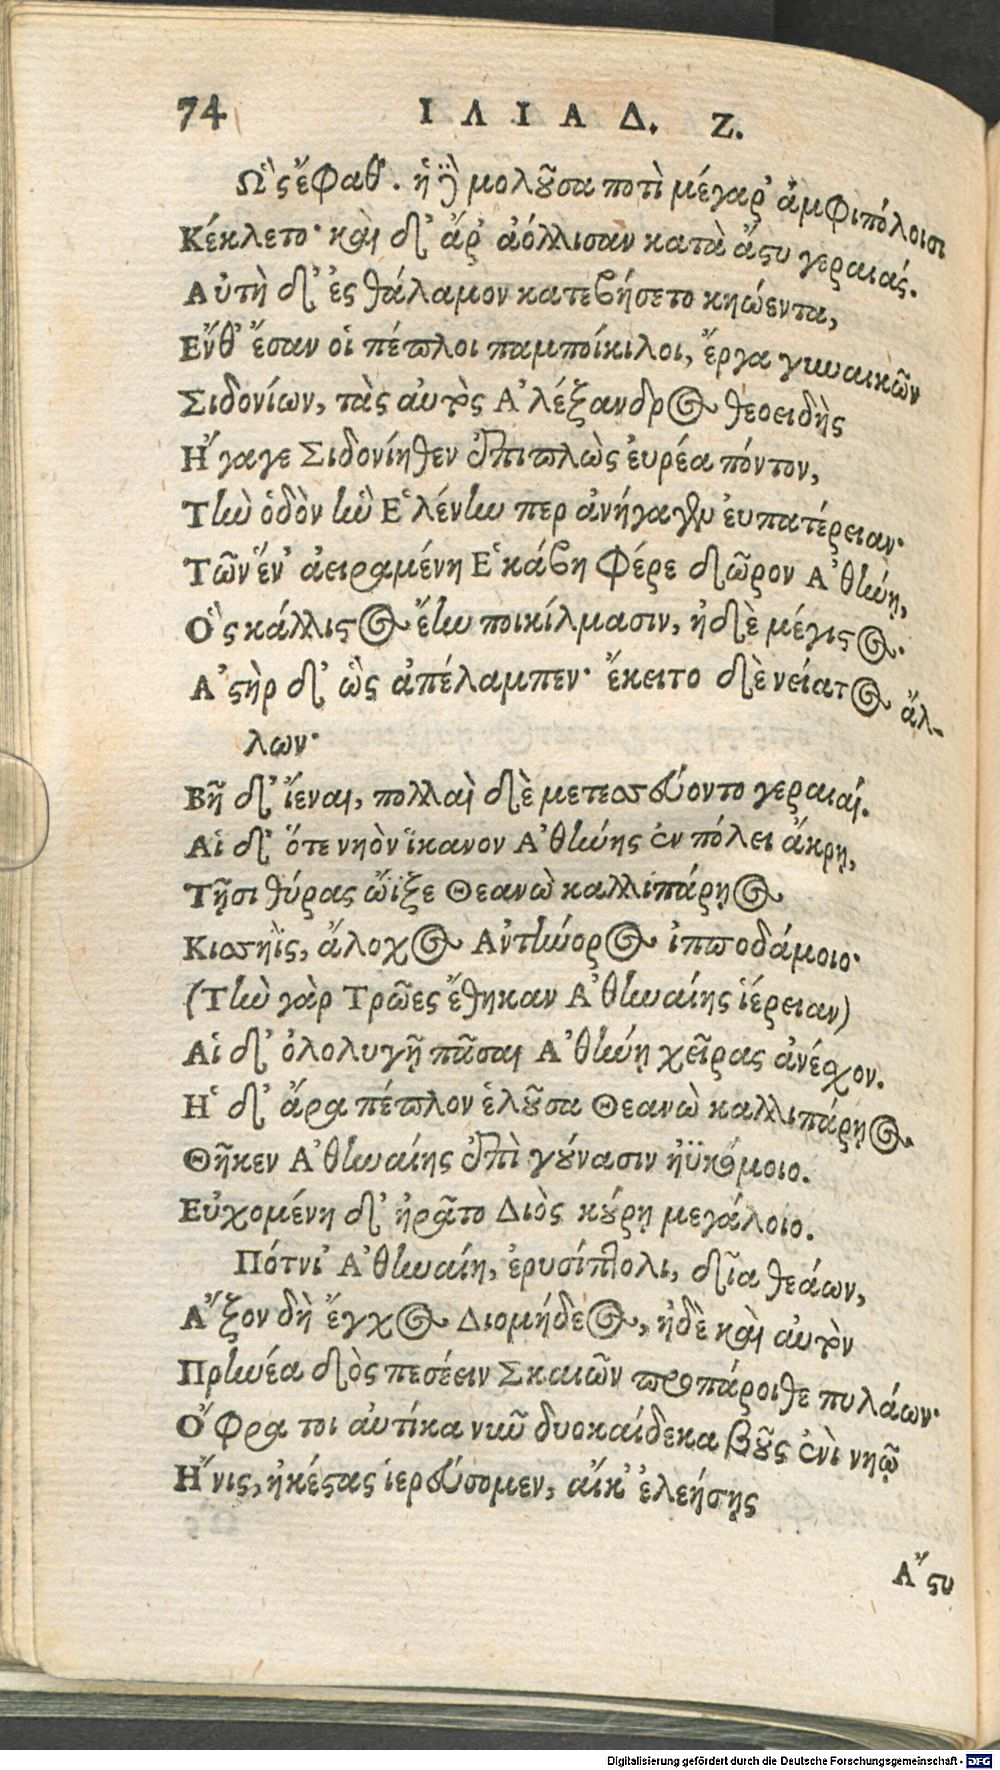 74 ΙΛΙΑΔ. Ζ.
Ὣς ἔφαθ᾽. ἡ δὲ μολοῦσα ποτὶ μέγαρ᾽ ἀμφιπόλοισι
Κέκλετο· καὶ δ᾽ ἄρ᾽ ἀόλλισαν κατὰ ἄστυ γεραιάς.
Αὐτὴ δ᾽ ἐς θάλαμον κατεβήσετο κηώεντα,
Ἔνθ᾽ ἔσαν οἱ πέπλοι παμποίκιλοι, ἔργα γυναικῶν
Σιδονίων, τὰς αὐτὸς Ἀλέξανδρος θεοειδὴς
Ἤγαγε Σιδονίηθεν ἐπιπλὼς εὐρέα πόντον,
Τὴν ὁδὸν ἣν Ἑλένην περ ἀνήγαγεν εὐπατέρειαν·
Τῶν ἕν᾽ ἀειραμένη Ἑκάβη φέρε δῶρον Ἀθήνῃ,
Ὃς κάλλιστος ἔην ποικίλμασιν, ἠδὲ μέγιστος.
Ἀστὴρ δ᾽ ὣς ἀπέλαμπεν· ἔκειτο δὲ νείατος ἄλ-
λων·
Βῆ δ᾽ ἴεναι, πολλαὶ δὲ μετεσσεύοντο γεραιαί.
Αἱ δ᾽ ὅτε νηὸν ἵκανον Ἀθήνης ἐν πόλει ἄκρῃ,
Τῇσι θύρας ὤϊξε Θεανὼ καλλιπάρῃος
Κισσηῒς, ἄλοχος Ἀντήνορος ἱπποδάμοιο·
(Τὴν γὰρ Τρῶες ἔθηκαν Ἀθηναίης ἱέρειαν)
Αἱ δ᾽ ὀλολυγῇ πᾶσαι Ἀθήνῃ χεῖρας ἀνέσχον.
Ἡ δ᾽ ἄρα πέπλον ἑλοῦσα Θεανὼ καλλιπάρῃος.
Θῆκεν Ἀθηναίης ἐπὶ γούνασιν ἠϋκόμοιο.
Εὐχομένη δ᾽ ἠρᾶτο Διὸς κούρῃ μεγάλοιο.
Πότνι᾽ Ἀθηναίη, ἐρυσίπτολι, δῖα θεάων,
Ἄξον δὴ ἔγχος Διομήδεος, ἠδὲ καὶ αὐτὸν
Πρηνέα δὸς πεσέειν Σκαιῶν προπάροιθε πυλάων·
Ὄφρα τοι αὐτίκα νῦν δυοκαίδεκα βοῦς ἐνὶ νηῷ
Ἤνις, ἠκέστας ἱερεύσομεν, αἴκ᾽ ἐλεήσῃς
Ἄστυ
Digitalisierung gefördert durch die Deutsche Forschungsgemeinschaft - DFG